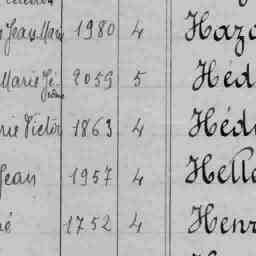 Jean Marie 1980 4 Haz
Marie Jé 2059 5 Héd
rôme
rie Victor 1863 4 Héd
Jean 1957 4 Helle
né 1752 4 Henr